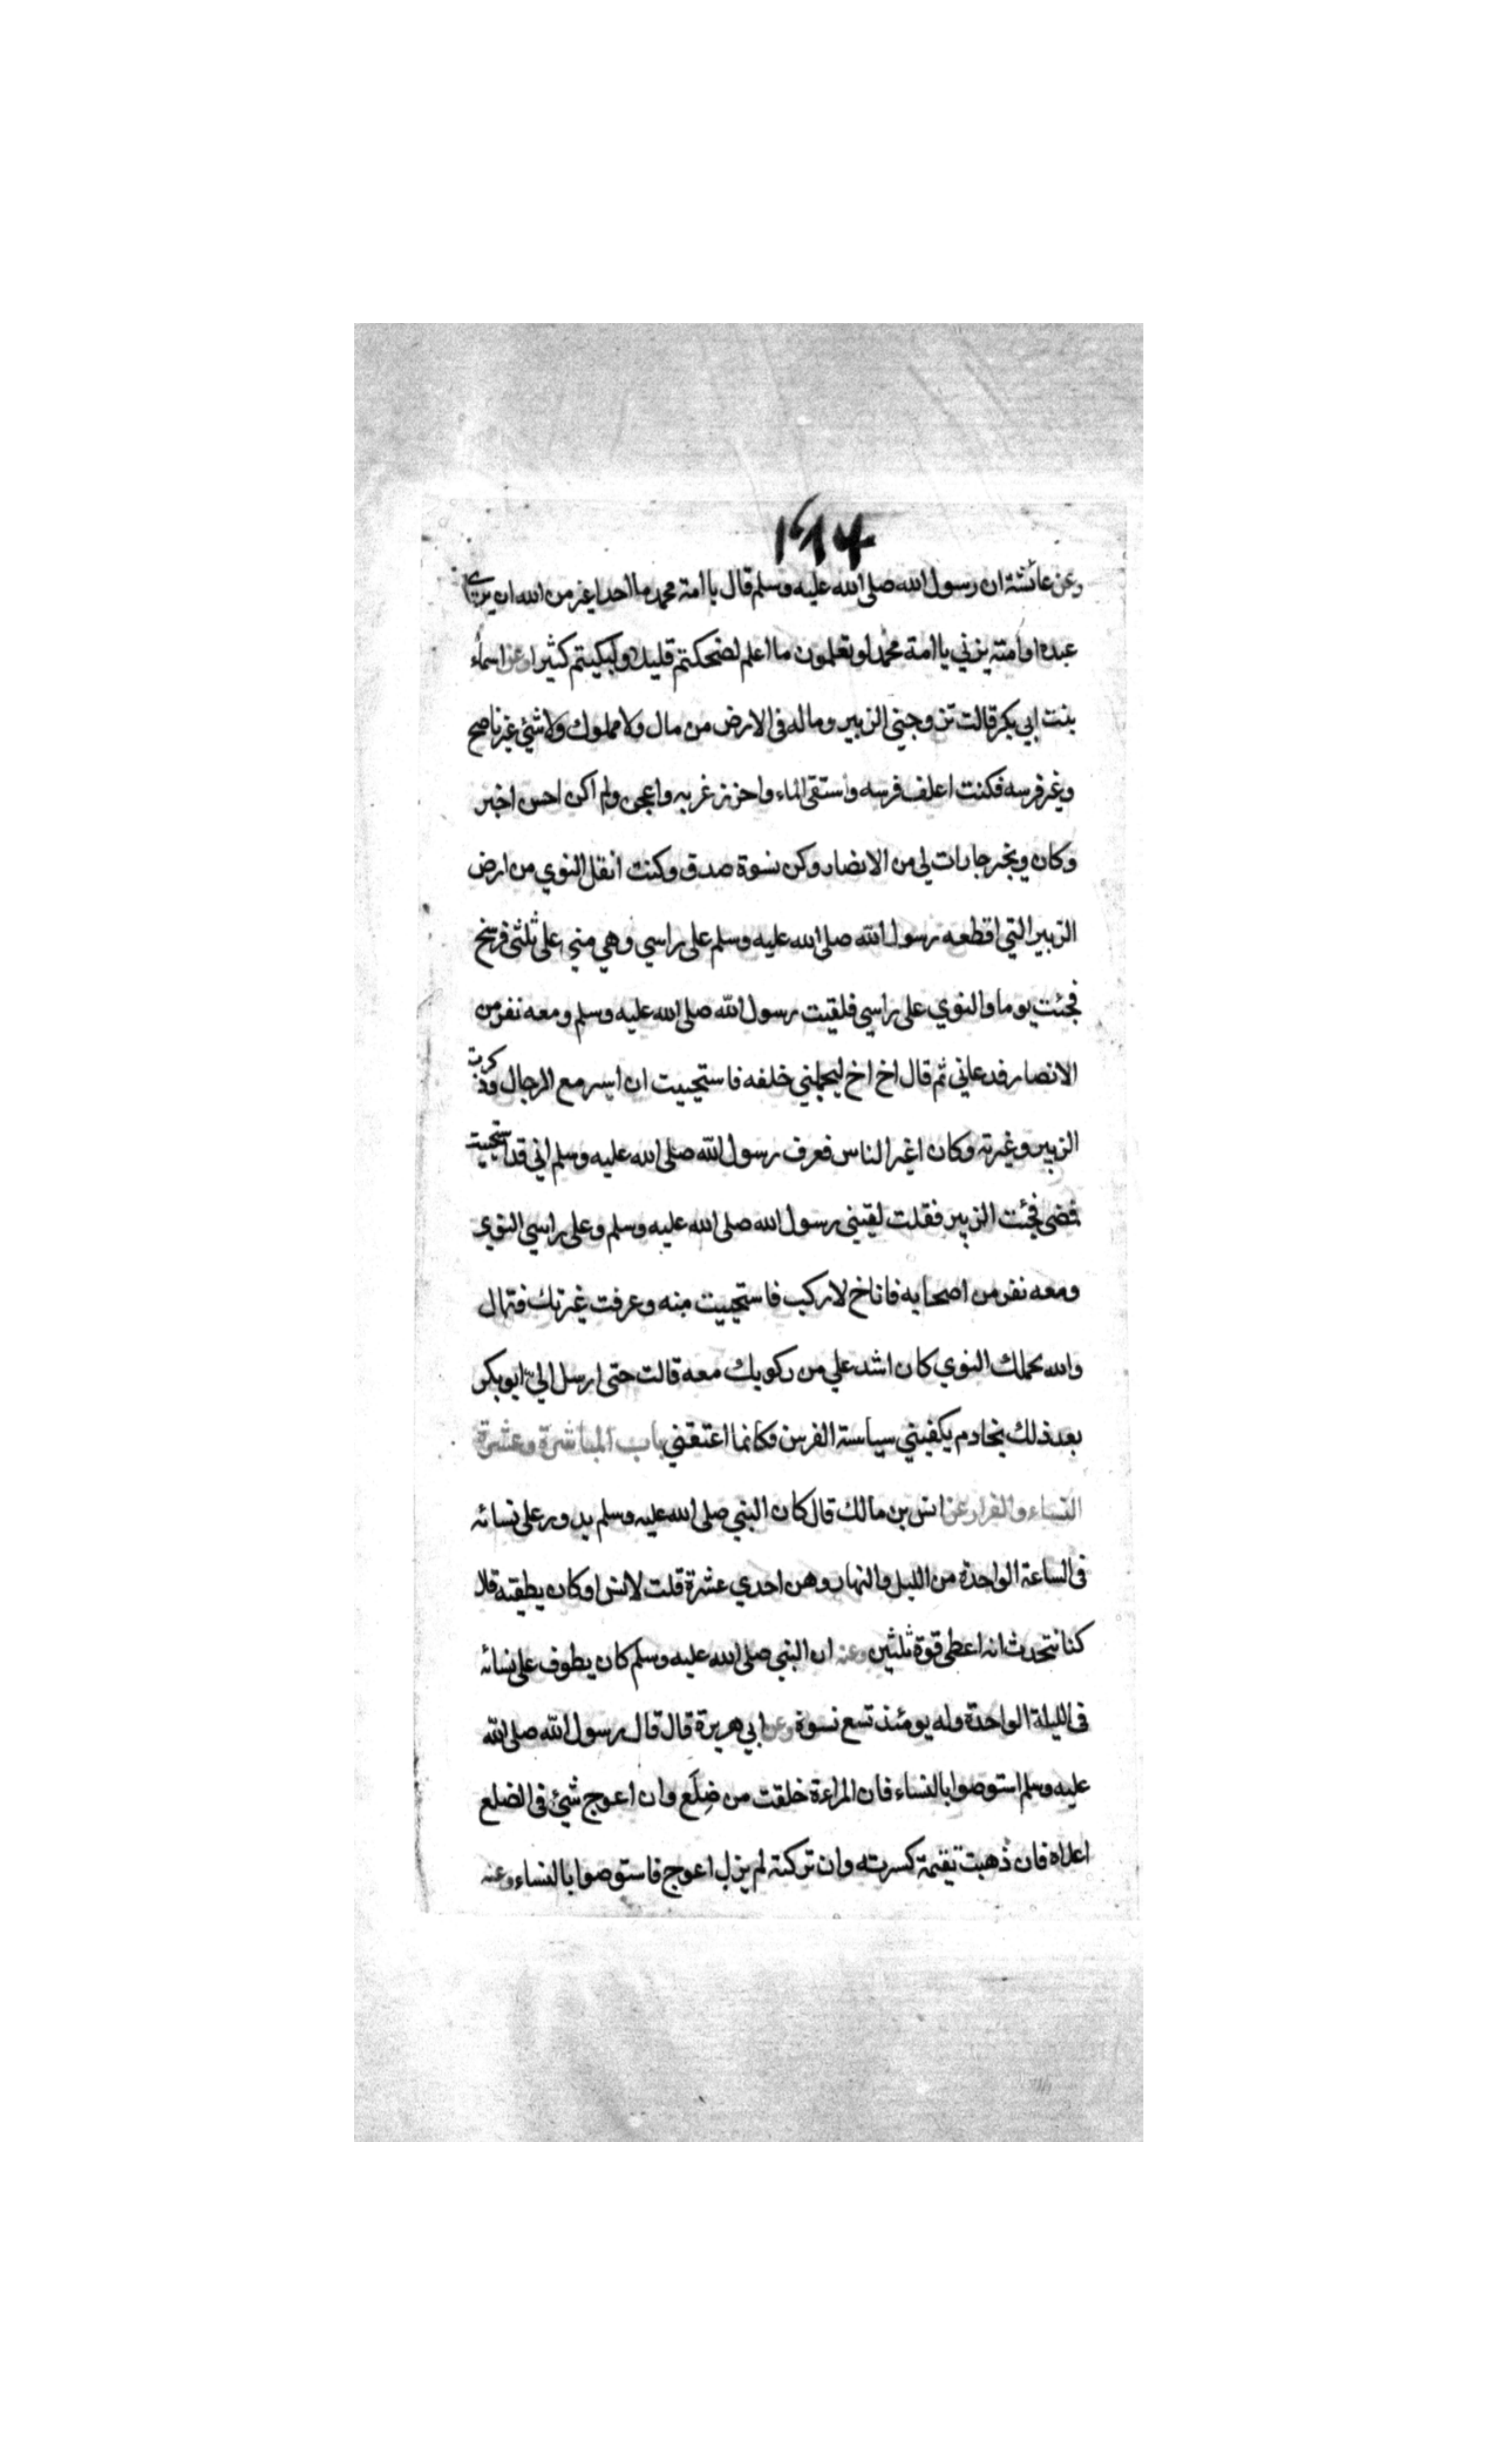 ۱۶۱۴
وعن عائشة ان رسول الله صلى الله عليه وسلم قال ياامة محمد مااحد اغير من الله ان يري
عبده اوامته يزني ياامة محمد لوتعلمون مااعلم لضحكتم قليلا ولبكيتم كثيرا وعن اسماء
بنت ابي بكر قالت تزوجني الزبير وماله فى الارض من مال ولامملوك ولاشئ غير ناضح
وغير فرسه فكنت اعلف فرسه واستقى الماء واخرز غربه واعجن ولم اكن احسن اخبز
وكان يخبز جارات لي من الانصار وكن نسوة صدق وكنت انقل النوي من ارض
الزبير التي اقطعه رسول الله صلى الله عليه وسلم على راسي وهي مني على ثلثى فرسخ
فجئت يوما والنوي على راسي فلقيت رسول الله صلى الله عليه وسلم ومعه نفر من
الانصار فدعاني ثم قال اخ اخ ليحملني خلفه فاستحييت ان اسير مع الرجال وذكرت
الزبير وغيرته وكان اغير الناس فعرف رسول الله صلى الله عليه وسلم اني قداستحييت
فمضى فجئت الزبير فقلت لقيني رسول الله صلى الله عليه وسلم وعلى راسي النوي
ومعه نفر من اصحابه فاناخ لاركب فاستحييت منه وعرفت غيرتك فقال
والله لحملك النوي كان اشد علي من ركوبك معه قالت حتى ارسل الي ابوبكر
بعدذلك بخادم يكفيني سياسة الفرس فكانما اعتقني باب المباشرة وعشرة
النساء والفرار عن انس بن مالك قال كان النبي صلى الله عليه وسلم يدور على نسائه
فى الساعة الواحدة من الليل والنهار وهن احدي عشرة قلت لانس اوكان يطيقه قال
كنا نتحدث انه اعطى قوة ثلثين وعنه ان النبي صلى الله عليه وسلم كان يطوف على نسائه
فى الليلة الواحدة وله يومئذ تسع نسوة وعن ابي هريرة قال قال رسول الله صلى الله
عليه وسلم استوصوا بالنساء فان المراءة خلقت من ضِلَع وان اعوج شئ فى الضلع
اعلاه فان ذهبت تقيمة كسرته وان تركتة لم يزل اعوج فاستوصوا بالنساء وعنه